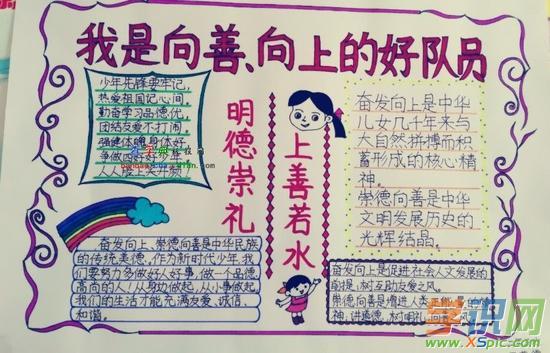 我是向善、向上的好队员
少年先锋要牢记,
热爱祖国记心间,
勤奋学习品德优,
团结友爱不打闹
强健体魄身体好
争做四好好少年
人人踏上笑开颜
明德崇礼
上善若水
奋发向上是中华
儿女几千年来与
大自然拼搏而积
蓄形成的核心精
神。
崇德向善是中华
文明发展历史的
光辉结晶。
奋发向上、崇德向善是中华民族
的传统美德。作为新时代少年,我
们要努力多做好人好事,做一个品德
高尚的人!从身边做起,从小事做起
我们的生活才能充满友爱、诚信、
和谐。
奋发向上是促进社会人文发展的
前提,树立友助友爱之风。
崇德向善是增进人类
神,讲道德、树明礼、向善之风
学识网
www.XSpic.com